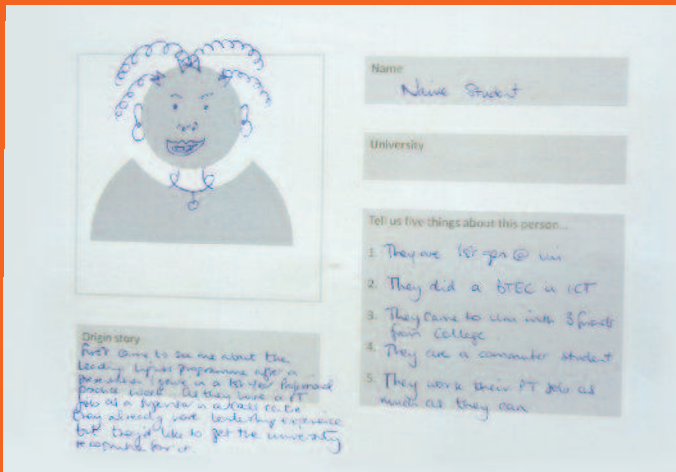 Name
Naive Student
University
Tell us five things about this person...
1. They are 1st gen @ uni
2. They did a BTEC in ICT
3. They came to uni with 3 friends
from college
4. They are a commuter student
5. They work their PT job as
much as they can
Origin story
First came to see me about the
Leading Lights programme after a
presentation I gave in a 1st year Professional
Practice work. As they have a PT
job as a supervisor in a call centre
they already have leadership experience
but they'd like to get the university
recognition for it.